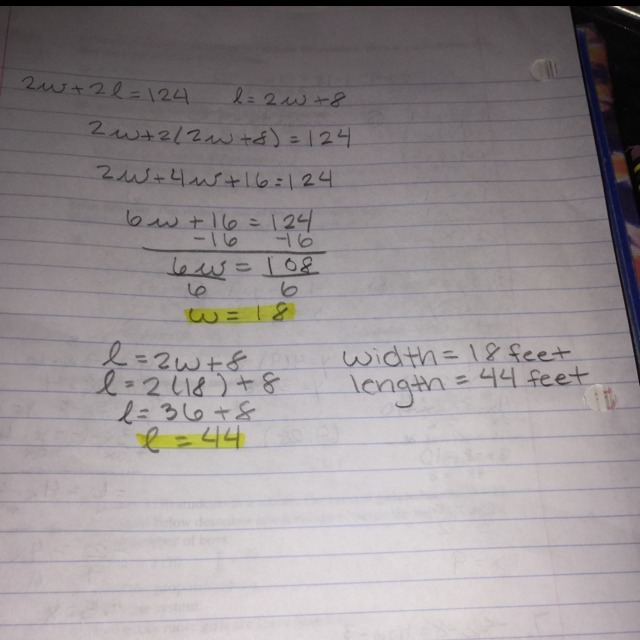 2w+2l=124 l=2w+8
2w+2(2w+8)=124
2w+4w+16=124
6w+16=124
-16 -16
6w=108
6 6
w=18
l=2w+8
l=2(18)+8
l=36+8
l=44
width=18 feet
length=44 feet